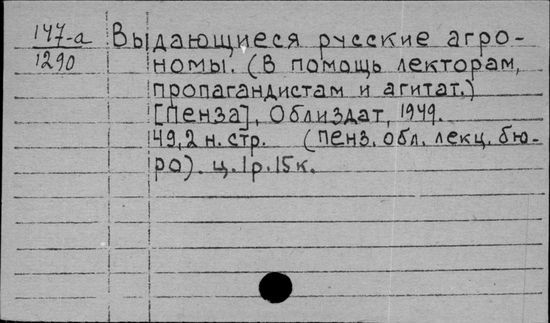 147-а Выдающиеся русские агро-
1290 номы. (В помощь лекторам,
пропагандистам и агитат.)
[Пенза], Облиздат, 1949.
49,2 н. стр. (Пенз. обл. лекц. бю-
ро). ц. 1 р. 15 к.